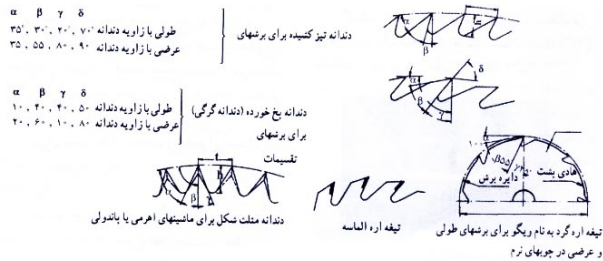 α β γ δ
طولی با زاویه دندانه ۷۰° ، ۲۰° ، ۳۰° ، ۳۵°
عرضی با زاویه دندانه ۹۰ ، ۸۰ ، ۵۵ ، ۳۵
دندانه تیز کشیده برای برشهای
α β γ δ
طولی با زاویه دندانه ۵۰ ، ۴۰ ، ۴۰ ، ۱۰
عرضی با زاویه دندانه ۸۰ ، ۱۰ ، ۶۰ ، ۲۰
دندانه بخ خورده (دندانه گرگی)
برای برشهای
تقسیمات
t
h
β
دندانه مثلث شکل برای ماشینهای اهرمی یا پاندولی
تیغه اره الماسه
α
β
α
δ
β
γ
هادی پشت
دایره برش
تیغه اره گرد به نام ویگو برای برشهای طولی
و عرضی در چوبهای نرم